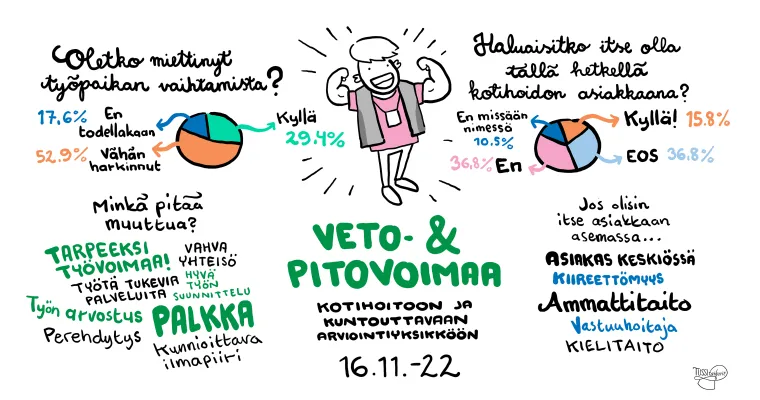 Oletko miettinyt
työpaikan vaihtamista?
17.6%
En
todellakaan
Kyllä
29.4%
52.9%
Vähän
harkinnut
Minkä pitää
muuttua?
TARPEEKSI
TYÖVOIMAA!
VAHVA
YHTEISÖ
TYÖTÄ TUKEVIA
PALVELUITA
HYVÄ
TYÖN
SUUNNITTELU
Työn arvostus
PALKKA
Perehdytys
Kunnioittava
ilmapiiri
VETO- &
PITOVOIMAA
KOTIHOITOON JA
KUNTOUTTAVAAN
ARVIOINTIYKSIKKÖÖN
16.11.-22
Haluaisitko itse olla
tällä hetkellä
kotihoidon asiakkaana?
En missään
nimessä
10.5%
Kyllä! 15.8%
36.8% En
EOS 36.8%
Jos olisin
itse asiakkaan
asemassa...
ASIAKAS KESKIÖSSÄ
KIIREETTÖMYYS
Ammattitaito
Vastuuhoitaja
KIELITAITO